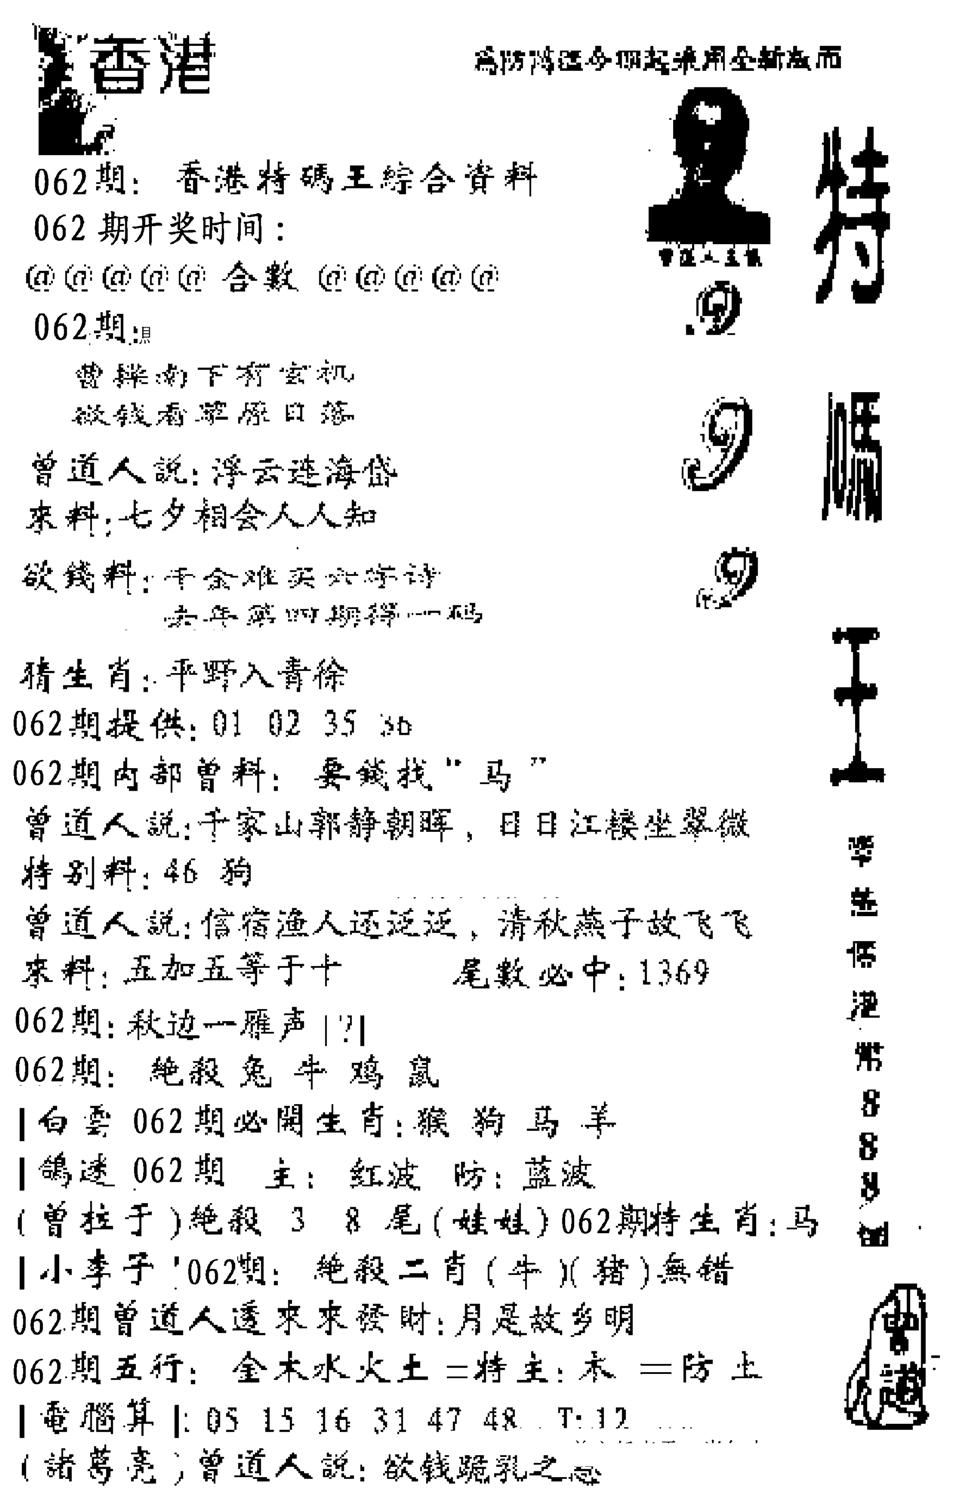 香港
為防濫今期起采用全新版面
062期: 香港特碼王綜合資料
062 期开奖时间:
@@@@@ 合數 @@@@@
062期:
曹操南下有玄机
欲钱看草原日落
曾道人説:浮云连海岱
來料:七夕相会人人知
欲錢料:千金难买六字诗
去年第四期得一码
猜生肖:平野入青徐
062期提供:01 02 35 36
062期内部曾料: 要錢找"马"
曾道人説:千家山郭静朝晖, 日日江楼坐翠微
特别料:46 狗
曾道人説:信宿渔人还泛泛, 清秋燕子故飞飞
來料:五加五等于十 尾數必中:1369
062期:秋边一雁声|?|
062期: 絶殺兔 牛 鸡 鼠
|白雲 062期必開生肖:猴 狗 马 羊
|鴿迷 062期 主: 红波 防: 蓝波
(曾拉于)絶殺 3 8 尾(娃娃)062期特生肖:马
|小李子'062期: 絶殺二肖(牛)(猪)無错
062期曾道人透來來發財:月是故乡明
062期五行: 金木水火土=特主:木 =防土
|電腦算|:05 15 16 31 47 48 T:12
(諸葛亮)曾道人説:欲钱跪乳之恩
曾道人主供
9
9
9
特
碼
王
港
幣
8
8
8
曾道